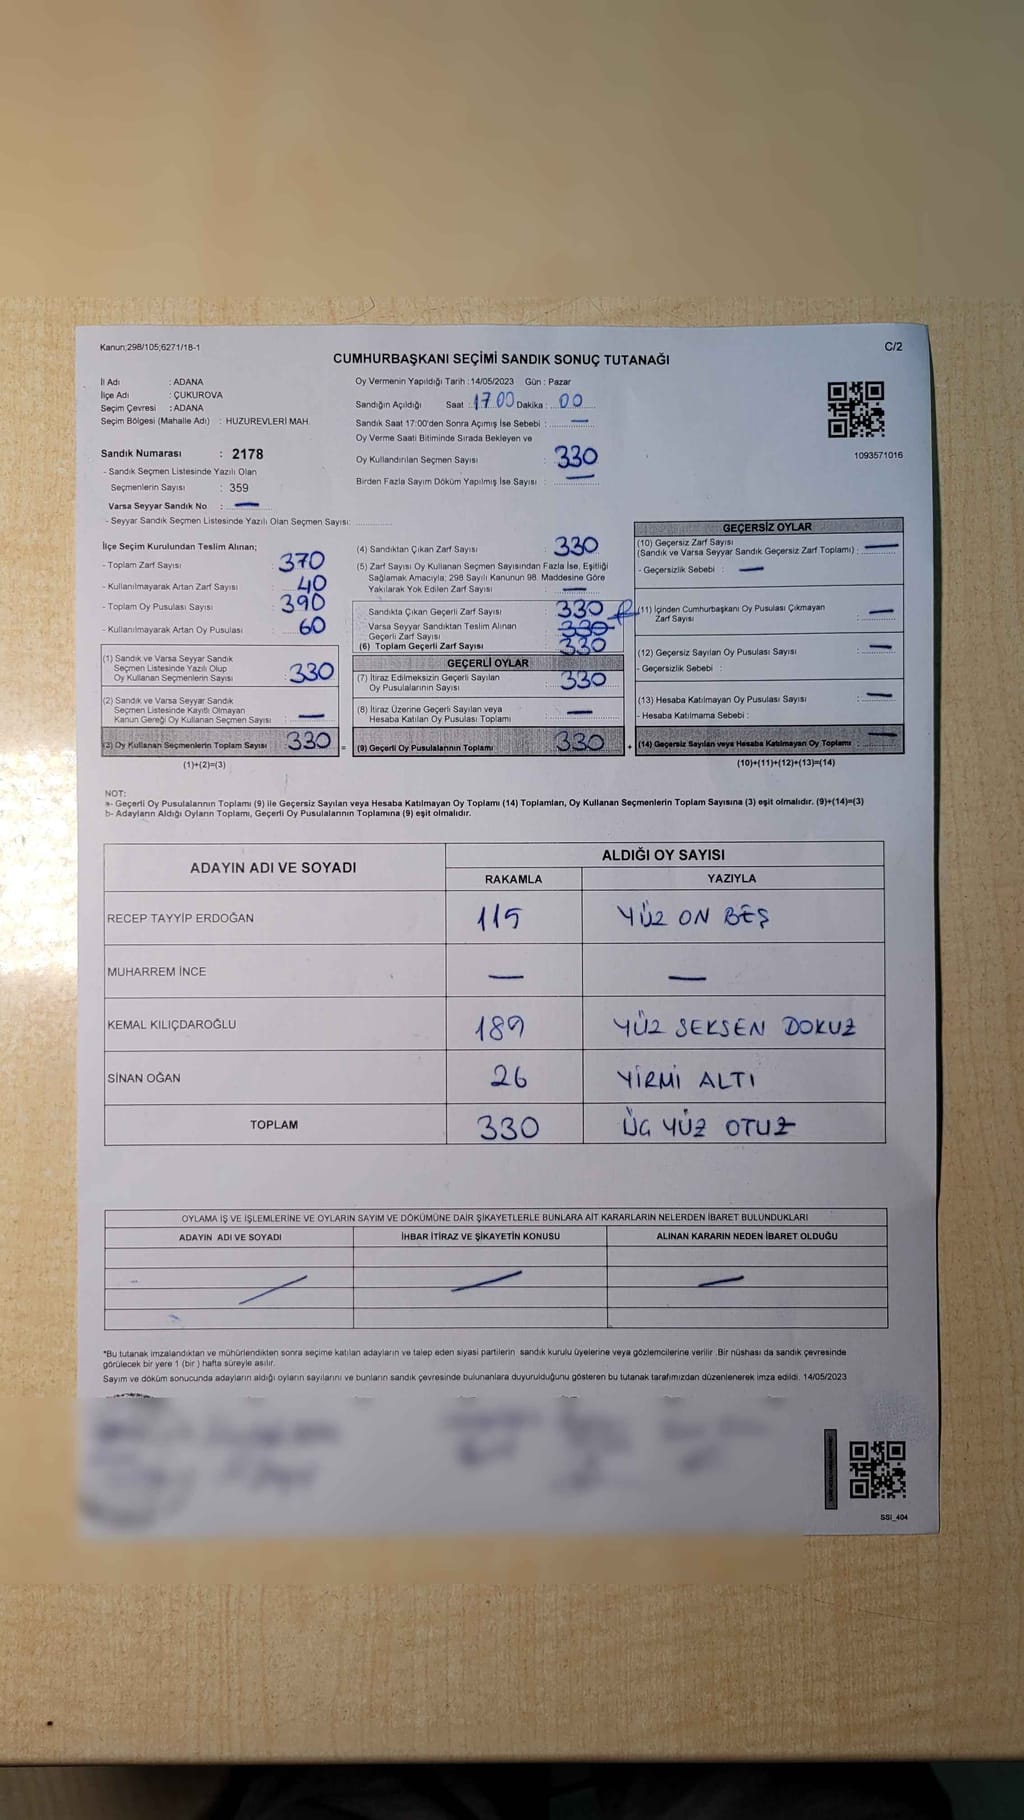 Kanun;298/105;6271/18-1
C/2
CUMHURBAŞKANI SEÇİMİ SANDIK SONUÇ TUTANAĞI
İl Adı : ADANA
İlçe Adı : ÇUKUROVA
Seçim Çevresi : ADANA
Seçim Bölgesi (Mahalle Adı) : HUZUREVLERİ MAH.
Sandık Numarası : 2178
- Sandık Seçmen Listesinde Yazılı Olan
Seçmenlerin Sayısı : 359
Varsa Seyyar Sandık No : —
- Seyyar Sandık Seçmen Listesinde Yazılı Olan Seçmen Sayısı:
Oy Vermenin Yapıldığı Tarih : 14/05/2023 Gün : Pazar
Sandığın Açıldığı Saat : 17.00 Dakika : 00
Sandık Saat 17:00'den Sonra Açımış İse Sebebi : —
Oy Verme Saati Bitiminde Sırada Bekleyen ve
Oy Kullandırılan Seçmen Sayısı : 330
Birden Fazla Sayım Döküm Yapılmış İse Sayısı : —
1093571016
İlçe Seçim Kurulundan Teslim Alınan;
- Toplam Zarf Sayısı : 370
- Kullanılmayarak Artan Zarf Sayısı : 40
- Toplam Oy Pusulası Sayısı : 390
- Kullanılmayarak Artan Oy Pusulası : 60
(1) Sandık ve Varsa Seyyar Sandık
Seçmen Listesinde Yazılı Olup
Oy Kullanan Seçmenlerin Sayısı : 330
(2) Sandık ve Varsa Seyyar Sandık
Seçmen Listesinde Kayıtlı Olmayan
Kanun Gereği Oy Kullanan Seçmen Sayısı : —
(3) Oy Kullanan Seçmenlerin Toplam Sayısı : 330 =
(1)+(2)=(3)
(4) Sandıktan Çıkan Zarf Sayısı : 330
(5) Zarf Sayısı Oy Kullanan Seçmen Sayısından Fazla İse, Eşitliği
Sağlamak Amacıyla; 298 Sayılı Kanunun 98. Maddesine Göre
Yakılarak Yok Edilen Zarf Sayısı : —
Sandıkta Çıkan Geçerli Zarf Sayısı : 330
Varsa Seyyar Sandıktan Teslim Alınan
Geçerli Zarf Sayısı : 330
(6) Toplam Geçerli Zarf Sayısı : 330
GEÇERLİ OYLAR
(7) İtiraz Edilmeksizin Geçerli Sayılan
Oy Pusulalarının Sayısı : 330
(8) İtiraz Üzerine Geçerli Sayılan veya
Hesaba Katılan Oy Pusulası Toplamı : —
(9) Geçerli Oy Pusulalarının Toplamı : 330 +
GEÇERSİZ OYLAR
(10) Geçersiz Zarf Sayısı
(Sandık ve Varsa Seyyar Sandık Geçersiz Zarf Toplamı) : —
- Geçersizlik Sebebi : —
(11) İçinden Cumhurbaşkanı Oy Pusulası Çıkmayan
Zarf Sayısı : —
(12) Geçersiz Sayılan Oy Pusulası Sayısı : —
- Geçersizlik Sebebi :
(13) Hesaba Katılmayan Oy Pusulası Sayısı : —
- Hesaba Katılmama Sebebi :
(14) Geçersiz Sayılan veya Hesaba Katılmayan Oy Toplamı : —
(10)+(11)+(12)+(13)=(14)
NOT:
a- Geçerli Oy Pusulalarının Toplamı (9) ile Geçersiz Sayılan veya Hesaba Katılmayan Oy Toplamı (14) Toplamları, Oy Kullanan Seçmenlerin Toplam Sayısına (3) eşit olmalıdır. (9)+(14)=(3)
b- Adayların Aldığı Oyların Toplamı, Geçerli Oy Pusulalarının Toplamına (9) eşit olmalıdır.
ADAYIN ADI VE SOYADI
ALDIĞI OY SAYISI
RAKAMLA YAZIYLA
RECEP TAYYİP ERDOĞAN 115 YÜZ ON BEŞ
MUHARREM İNCE — —
KEMAL KILIÇDAROĞLU 189 YÜZ SEKSEN DOKUZ
SİNAN OĞAN 26 YİRMİ ALTI
TOPLAM 330 ÜÇ YÜZ OTUZ
OYLAMA İŞ VE İŞLEMLERİNE VE OYLARIN SAYIM VE DÖKÜMÜNE DAİR ŞİKAYETLERLE BUNLARA AİT KARARLARIN NELERDEN İBARET BULUNDUKLARI
ADAYIN ADI VE SOYADI İHBAR İTİRAZ VE ŞİKAYETİN KONUSU ALINAN KARARIN NEDEN İBARET OLDUĞU
*Bu tutanak imzalandıktan ve mühürlendikten sonra seçime katılan adayların ve talep eden siyasi partilerin sandık kurulu üyelerine veya gözlemcilerine verilir .Bir nüshası da sandık çevresinde
görülecek bir yere 1 (bir ) hafta süreyle asılır.
Sayım ve döküm sonucunda adayların aldığı oyların sayılarını ve bunların sandık çevresinde bulunanlara duyurulduğunu gösteren bu tutanak tarafımızdan düzenlenerek imza edildi. 14/05/2023
SSI_404